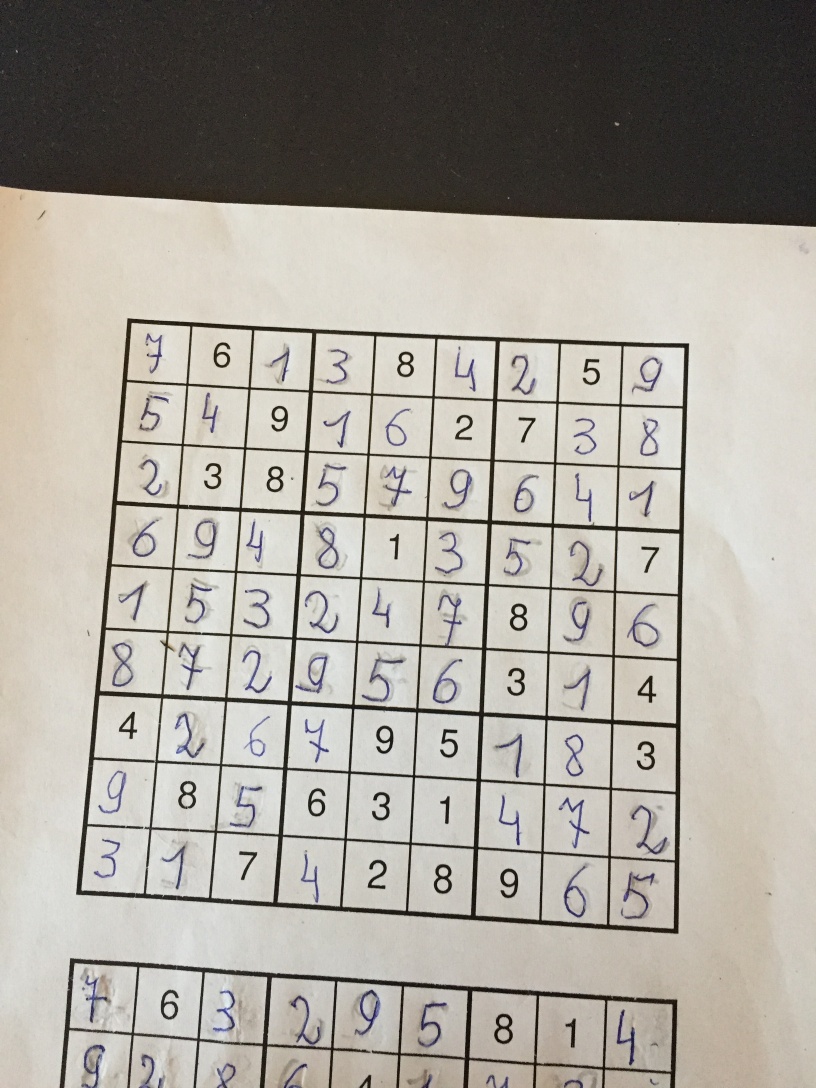 7 6 1 3 8 4 2 5 9
5 4 9 1 6 2 7 3 8
2 3 8 5 7 9 6 4 1
6 9 4 8 1 3 5 2 7
1 5 3 2 4 7 8 9 6
8 7 2 9 5 6 3 1 4
4 2 6 7 9 5 1 8 3
9 8 5 6 3 1 4 7 2
3 1 7 4 2 8 9 6 5
7 6 3 2 9 5 8 1 4
9 2 8 6